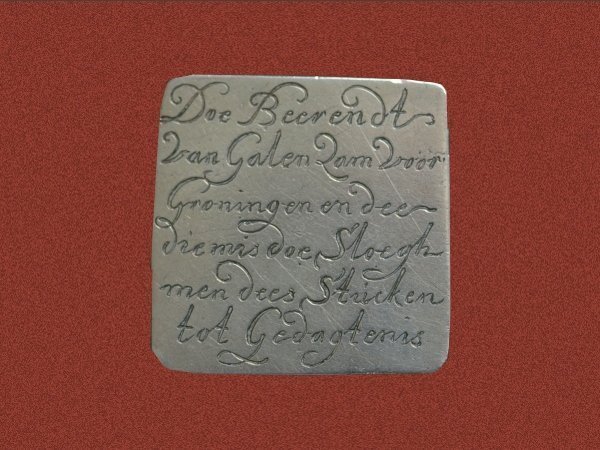 Doe Beerendt
van Galen Qam voor
Groningen en dee
die mis doe Sloegh
men dees Stucken
tot Gedagtenis